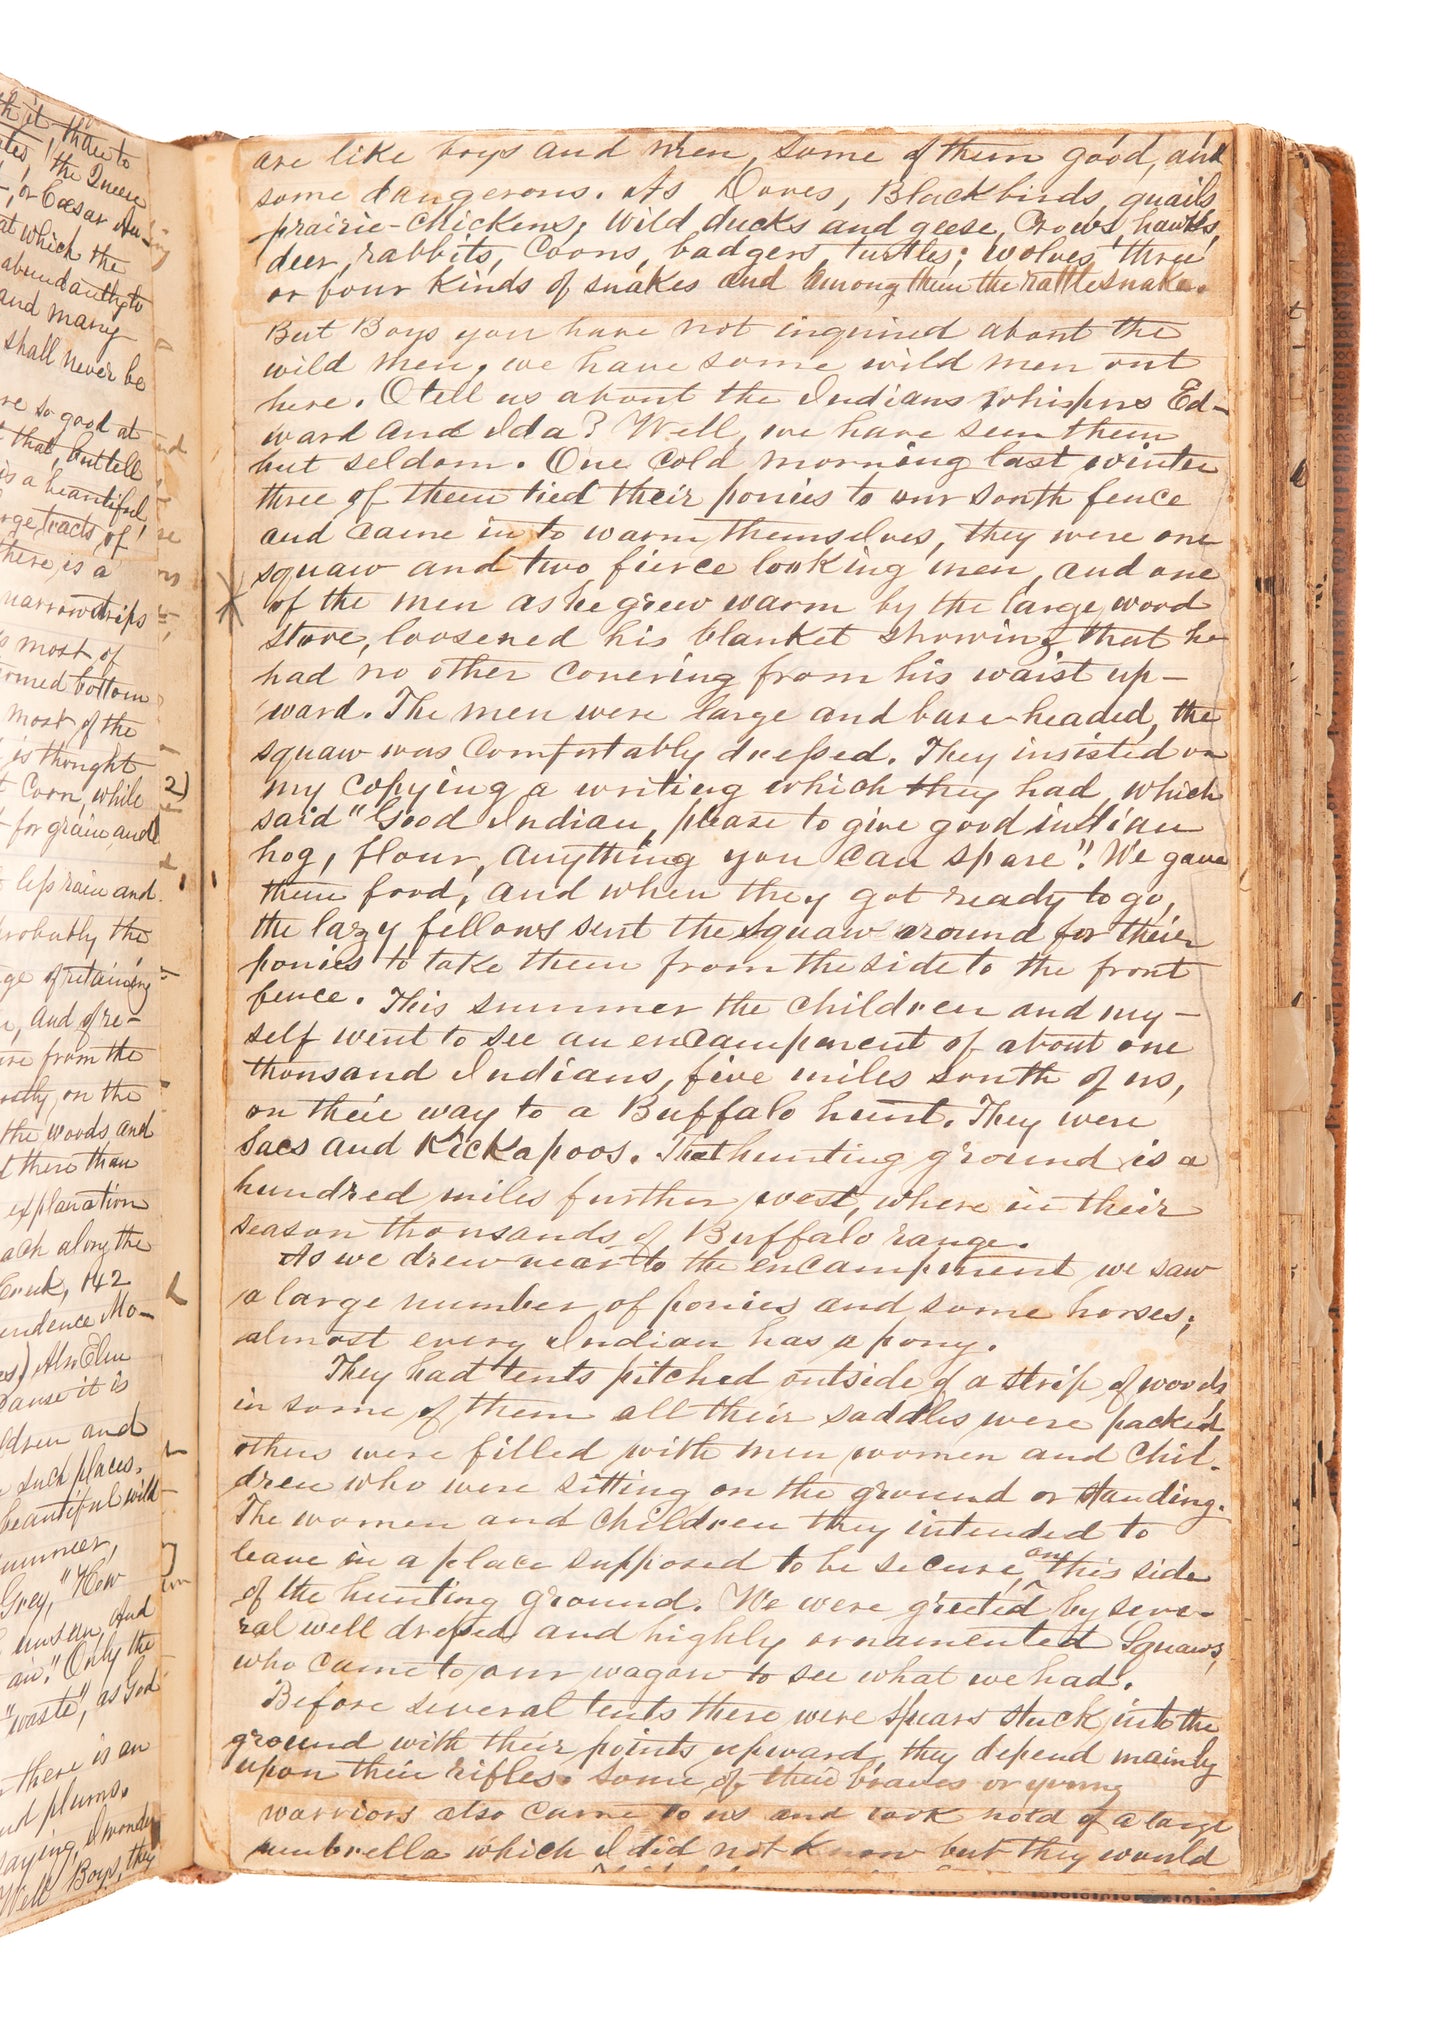 th it thee to
the Queen
, or Cæsar Au-
at which the
abundantly to
and many
shall never be
re so good at
that, but tell
is a beautiful
rge tracts of
there is a
narrow strips
most of
bottom
most of the
is thought
Corn, while
for grain, and
less rain and
probably the
ge of retaining
, and of re-
from the
mostly on the
the woods and
there than
explanation
ach along the
Creek, 142
endence Mo-
Also Elm
cause it is
ldren and
such places.
beautiful wild
summer,
Grey," "How
unseen, And
air." Only the
"waste", as God
there is an
nd plums.
saying, I wonder
Well Boys, they
are like boys and men, some of them good, and
some dangerous. As Doves, Blackbirds, quails,
prairie-chickens; wild ducks and geese, Crows, hawks,
deer, rabbits, Coons, badgers, turtles; wolves, three
or four kinds of snakes and among them the rattlesnake.
But Boys you have not inquired about the
wild men, we have some wild men out
here. O tell us about the Indians whispers Ed-
ward and Ida? Well, we have seen them
but seldom. One Cold morning last winter
three of them tied their ponies to our south fence
and came in to warm themselves, they were one
squaw and two fierce looking men, and one
of the men as he grew warm by the large wood
stove, loosened his blanket showing that he
had no other covering from his waist up-
ward. The men were large and bare-headed, the
squaw was Comfortably dressed. They insisted on
my copying a writing which they had, which
said "Good Indian, please to give good indian
hog, flour, anything you can spare". We gave
them food, and when they got ready to go,
the lazy fellows sent the squaw around for their
ponies to take them from the side to the front
fence. This summer the children and my-
self went to see an encampment of about one
thousand Indians, five miles south of us,
on their way to a Buffalo hunt. They were
Sacs and Kickapoos. That hunting ground is a
hundred miles further west, where in their
season thousands of Buffalo range.
As we drew near to the encampment we saw
a large number of ponies and some horses;
almost every Indian has a pony.
They had tents pitched outside of a strip of woods,
in some of them all their saddles were packed
others were filled with men women and chil-
dren who were sitting on the ground or standing.
The women and children they intended to
leave in a place supposed to be secure, on this side
of the hunting ground. We were greeted by seve-
ral well dressed and highly ornamented Squaws,
who came to our wagon to see what we had.
Before several tents there were spears stuck into the
ground with their points upward, they depend mainly
upon their rifles. Some of their braves or young
warriors also came to us and took hold of a large
umbrella which I did not know but they would